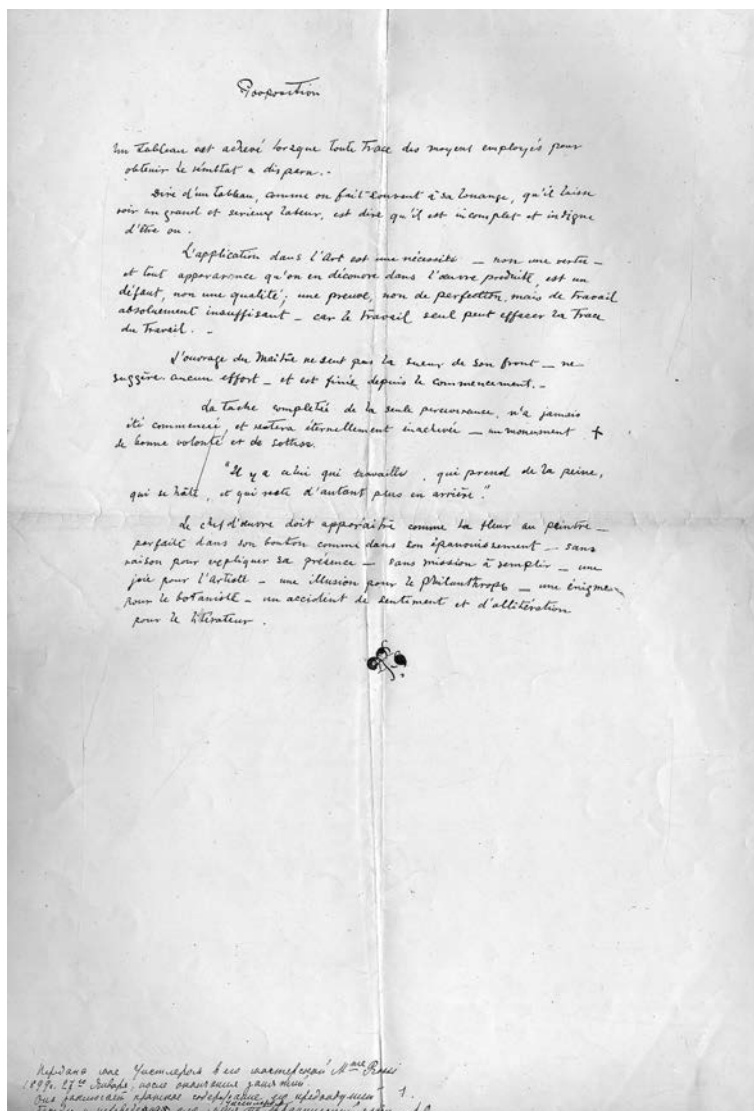 Proposition
Un tableau est achevé lorsque toute trace des moyens employés pour
obtenir le résultat a disparu. -
Dire d'un tableau, comme on fait souvent à sa louange, qu'il laisse
voir un grand et serieux labeur, est dire qu'il est incomplet et indigne
d'être vu.
L'application dans l'Art est une nécessité — non une vertu —
et tout apparence qu'on en découvre dans l'œuvre produite, est un
défaut, non une qualité; une preuve, non de perfection, mais de travail
absolument insuffisant — car le travail seul peut effacer la trace
du travail. -
L'ouvrage du Maître ne sent pas la sueur de son front — ne
suggère aucun effort — et est finie depuis le commencement. -
La tache completée de la seule perseverance, n'a jamais
été commencée, et restera éternellement inachevée — un monument +
de bonne volonté et de sottise.
"Il y a celui qui travaille, qui prend de la peine,
qui se hâte, et qui reste d'autant plus en arrière."
Le chef d'œuvre doit apparaître comme la fleur au peintre —
parfaite dans son bouton comme dans son épanouissement — sans
raison pour expliquer sa présence — sans mission à remplir — une
joie pour l'artiste — une illusion pour le philanthrope — une énigme
pour le botaniste — un accident de sentiment et d'allitération
pour le litérateur.
Передано мне Уистлеромъ в его мастерской Mme Rossi
1899г. 27го Января, после окончания занятий.